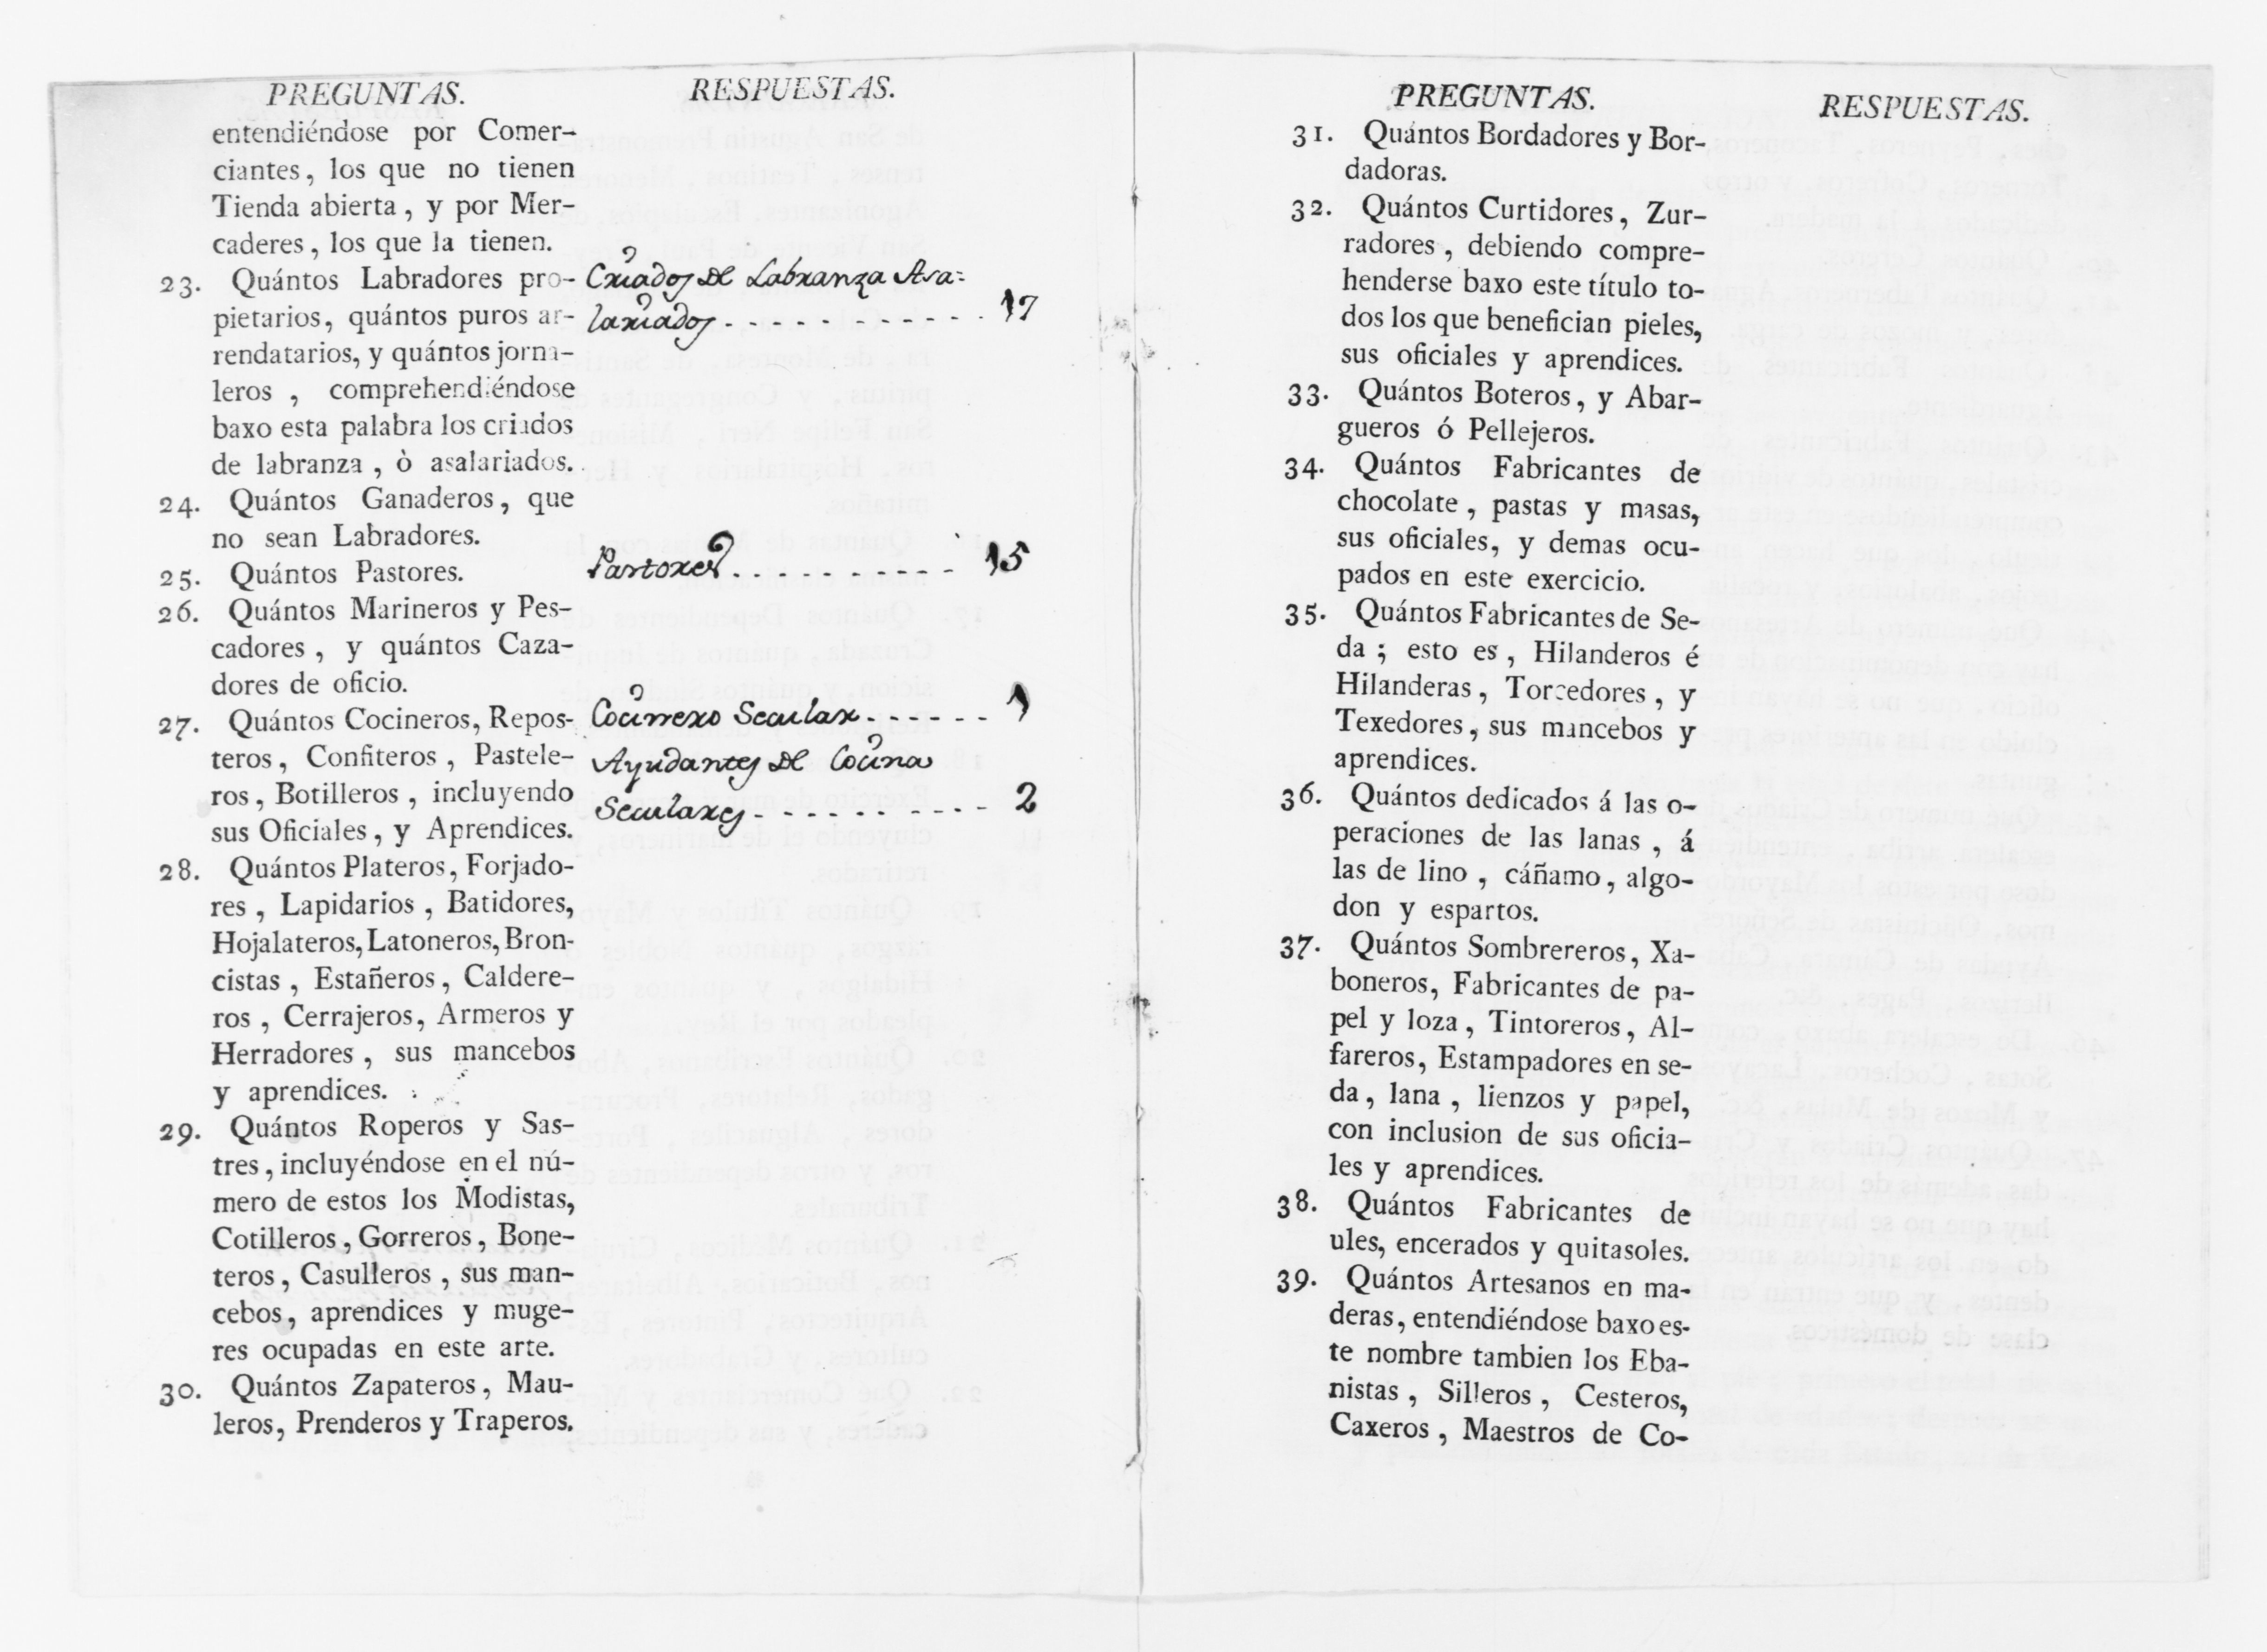 PREGUNTAS.
RESPUESTAS.
entendiéndose por Comer-
ciantes, los que no tienen
Tienda abierta, y por Mer-
caderes, los que la tienen.
23. Quántos Labradores pro-
pietarios, quántos puros ar-
rendatarios, y quántos jorna-
leros, comprehendiéndose
baxo esta palabra los criados
de labranza, ò asalariados.
Criados de Labranza Asa=
lariados - - - - - - - - - - - 17
24. Quántos Ganaderos, que
no sean Labradores.
25. Quántos Pastores.
Pastores - - - - - - - - - - 15
26. Quántos Marineros y Pes-
cadores, y quántos Caza-
dores de oficio.
27. Quántos Cocineros, Repos-
teros, Confiteros, Pastele-
ros, Botilleros, incluyendo
sus Oficiales, y Aprendices.
Cocinero Secular - - - - - - 1
Ayudantes de Cocina
Seculares - - - - - - - - - - 2
28. Quántos Plateros, Forjado-
res, Lapidarios, Batidores,
Hojalateros, Latoneros, Bron-
cistas, Estañeros, Caldere-
ros, Cerrajeros, Armeros y
Herradores, sus mancebos
y aprendices.
29. Quántos Roperos y Sas-
tres, incluyéndose en el nú-
mero de estos los Modistas,
Cotilleros, Gorreros, Bone-
teros, Casulleros, sus man-
cebos, aprendices y muge-
res ocupadas en este arte.
30. Quántos Zapateros, Mau-
leros, Prenderos y Traperos.
PREGUNTAS.
RESPUESTAS.
31. Quántos Bordadores y Bor-
dadoras.
32. Quántos Curtidores, Zur-
radores, debiendo compre-
henderse baxo este título to-
dos los que benefician pieles,
sus oficiales y aprendices.
33. Quántos Boteros, y Abar-
gueros ó Pellejeros.
34. Quántos Fabricantes de
chocolate, pastas y masas,
sus oficiales, y demas ocu-
pados en este exercicio.
35. Quántos Fabricantes de Se-
da; esto es, Hilanderos é
Hilanderas, Torcedores, y
Texedores, sus mancebos y
aprendices.
36. Quántos dedicados á las o-
peraciones de las lanas, á
las de lino, cáñamo, algo-
don y espartos.
37. Quántos Sombrereros, Xa-
boneros, Fabricantes de pa-
pel y loza, Tintoreros, Al-
fareros, Estampadores en se-
da, lana, lienzos y papel,
con inclusion de sus oficia-
les y aprendices.
38. Quántos Fabricantes de
ules, encerados y quitasoles.
39. Quántos Artesanos en ma-
deras, entendiéndose baxo es-
te nombre tambien los Eba-
nistas, Silleros, Cesteros,
Caxeros, Maestros de Co-